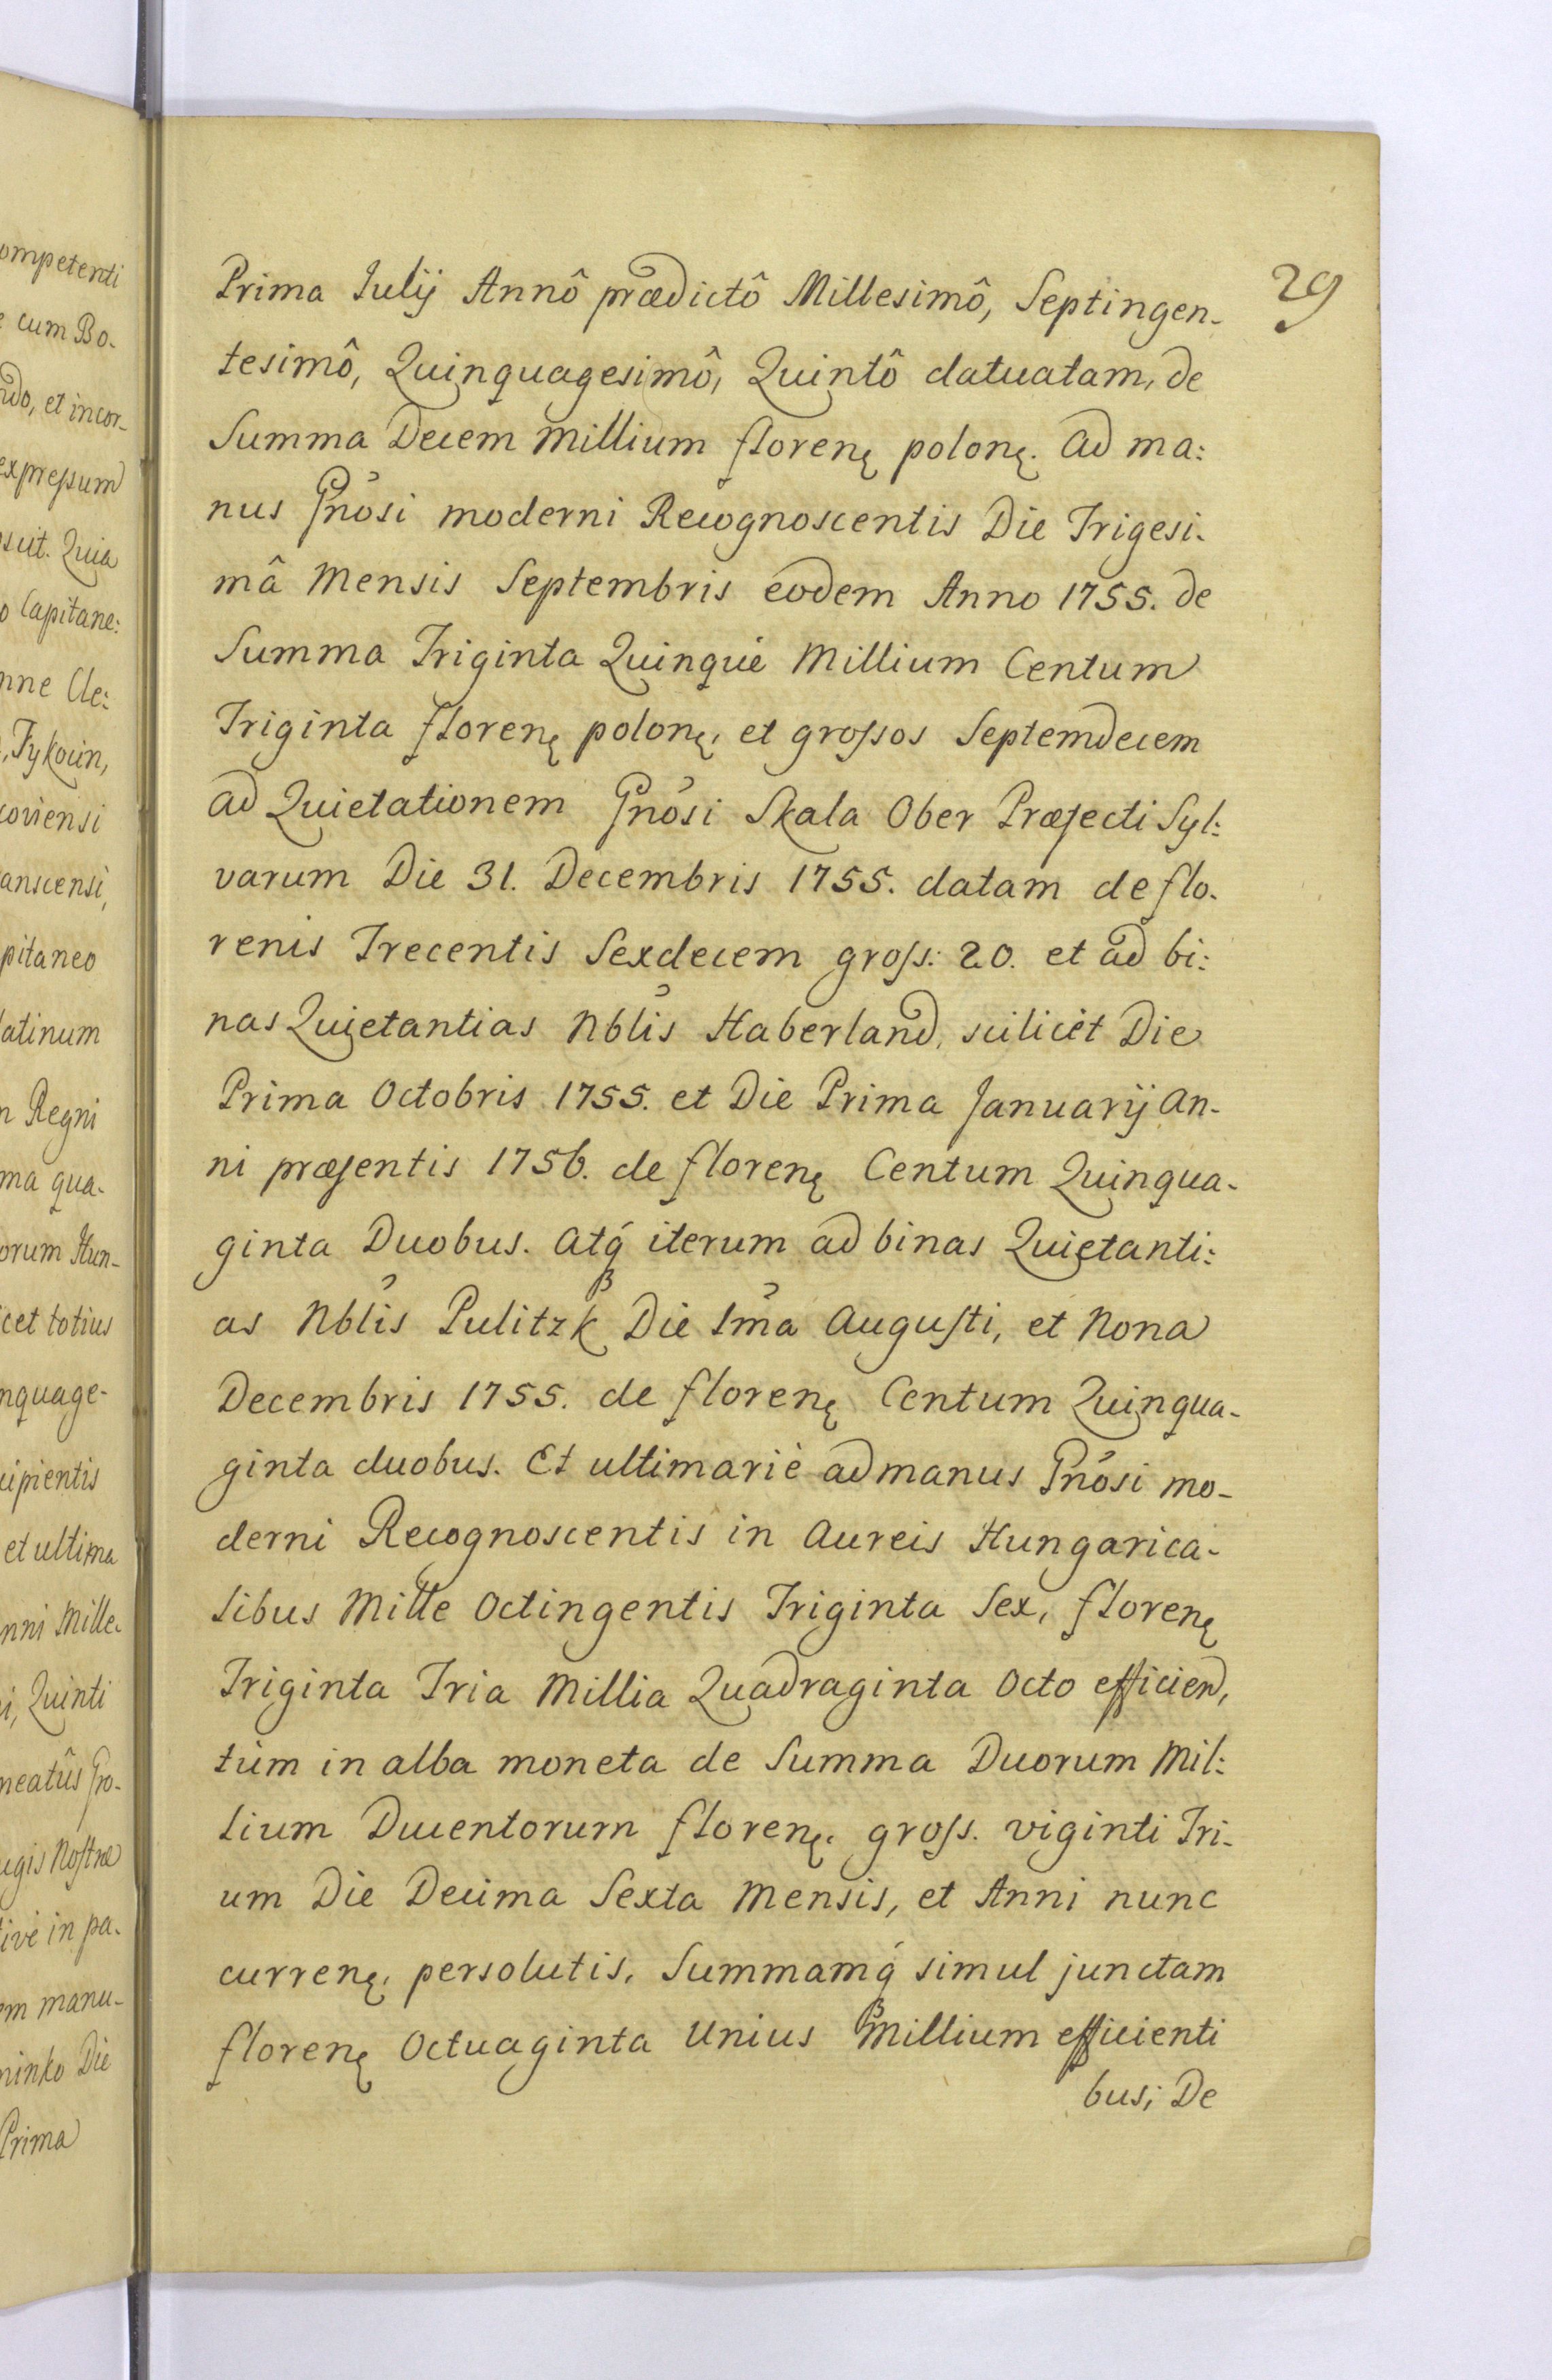 ompetenti
cum Bo-
ndo, et incor-
expressum
oscit. Quia
o Capitane:
nne Cle:
, Tykocin,
coviensi
anscensi,
pitaneo
latinum
n Regni
ma qua-
orum Hun-
icet totius
nquage-
cipientis
et ultima
nni Mille-
i, Quinti
neatûs Pro-
egis Nostræ
tivè in pa-
em manu-
ninko Die
Prima
29
Prima Iulij Annô prædictô Millesimô, Septingen-
tesimô, Quinquagesimô, Quintô datuatam, de
Summa Decem Millium florenę polonę. ad ma:
nus Gnosi moderni Recognoscentis Die Trigesi-
mâ Mensis Septembris eodem Anno 1755. de
Summa Triginta Quinque Millium Centum
Triginta florenę polonę, et grossos Septemdecem
ad Quietationem Gnosi Skala Ober Præfecti Syl:
varum Die 31. Decembris 1755. datam de flo-
renis Trecentis Sexdecem gross: 20. et ad bi:
nas Quietantias Nblis Haberland, scilicèt Die
Prima Octobris 1755. et Die Prima Januarij an-
ni præsentis 1756. de florenę Centum Quinqua-
ginta Duobus. atq́ iterum ad binas Quietanti:
as Nblis Pulitzk Die 1ma Augusti, et Nona
Decembris 1755. de florenę Centum Quinqua-
ginta duobus. Et ultimariè ad manus Gnosi mo-
derni Recognoscentis in aureis Hungarica-
libus Mille Octingentis Triginta Sex, florenę
Triginta Tria Millia Quadraginta Octo efficien,
tùm in alba moneta de Summa Duorum Mil:
lium Ducentorum florenę. gross. viginti Tri-
um Die Decima Sexta Mensis, et Anni nunc
currenę, persolutis, Summamq́ simul junctam
florenę Octuaginta Unius Millium efficienti
bus; De